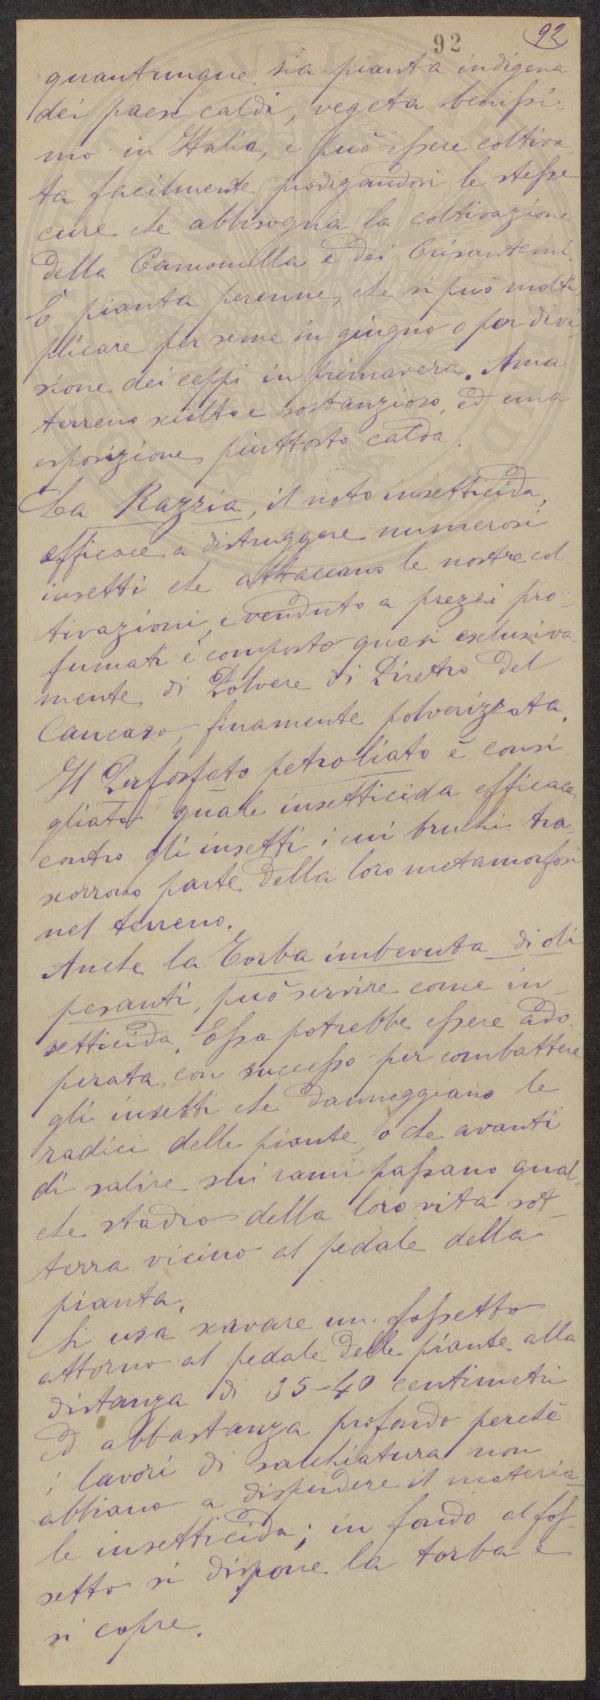 92
92
quantunque sia pianta indigena
dei paesi caldi, vegeta benissi-
mo in Italia, e può essere coltiva
ta facilmente prodigandosi le stesse
cure che abbisogna la coltivazione
della Camomilla e dei Crisantemi.
E pianta perenne, che si può molti
plicare per seme in giugno o per divi
sione dei ceppi in primavera. Ama
terreno sciolto e sostanzioso, ed una
esposizione piuttosto calda.
La Razzia, il noto insetticida,
efficace a distruggere numerosi
insetti che attaccano le nostre col-
tivazioni, e venduto a prezzi pro-
fumati è composto quasi esclusiva-
mente di Polvere di Piretro del
Caucaso, finamente polverizzata.
Il Perfosfato petroliato è consi
gliato quale insetticida efficace
contro gli insetti i cui bruchi tra
scorrono parte della loro metamorfosi
nel terreno.
Anche la Torba imbevuta di oli
pesanti, può servire come in-
setticida. Essa potrebbe essere ado
perata con successo per combattere
gli insetti che danneggiano le
radici delle piante, o che avanti
di salire sui rami passano qual-
che stadio della loro vita sot-
terra vicino al pedale della
pianta.
Si usa scavare un fossetto
attorno al pedale delle piante alla
distanza di 35-40 centimetri
ed abbastanza profondo perchè
i lavori di sarchiatura non
abbiano a disperdere il materia
le insetticida; in fondo al fos-
setto si dispone la torba e
si copre.